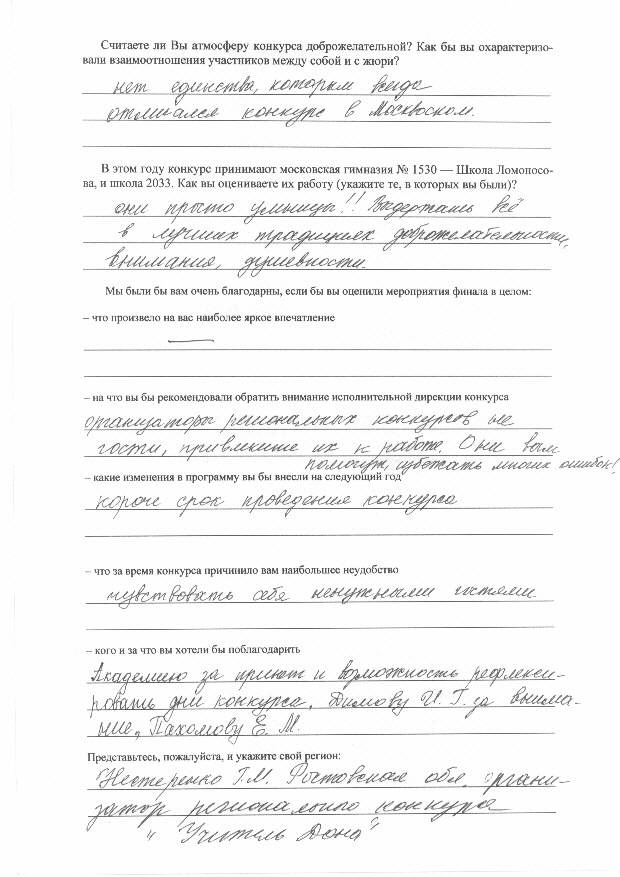 Считаете ли Вы атмосферу конкурса доброжелательной? Как бы вы охарактеризо-
вали взаимоотношения участников между собой и с жюри?
нет единства, которым всегда
отличался конкурс в Москвоском.
В этом году конкурс принимают московская гимназия № 1530 — Школа Ломоносо-
ва, и школа 2033. Как вы оцениваете их работу (укажите те, в которых вы были)?
они просто умницы!! Выдержать всё
в лучших традициях доброжелательности,
внимания, душевности.
Мы были бы вам очень благодарны, если бы вы оценили мероприятия финала в целом:
– что произвело на вас наиболее яркое впечатление
—
– на что вы бы рекомендовали обратить внимание исполнительной дирекции конкурса
организаторы региональных конкурсов не
гости, привлеките их к работе. Они вам
помогут избежать многих ошибок!
– какие изменения в программу вы бы внесли на следующий год
короче срок проведения конкурса
– что за время конкурса причинило вам наибольшее неудобство
чувствовать себя ненужными гостями.
– кого и за что вы хотели бы поблагодарить
Академию за приют и возможность рефлекси-
ровать дни конкурса, Димову И. Г. за внима-
ние, Пахомову Е. М.
Представьтесь, пожалуйста, и укажите свой регион:
Нестеренко Г.М. Ростовская обл. органи-
затор регионального конкурса
"Учитель Дона"